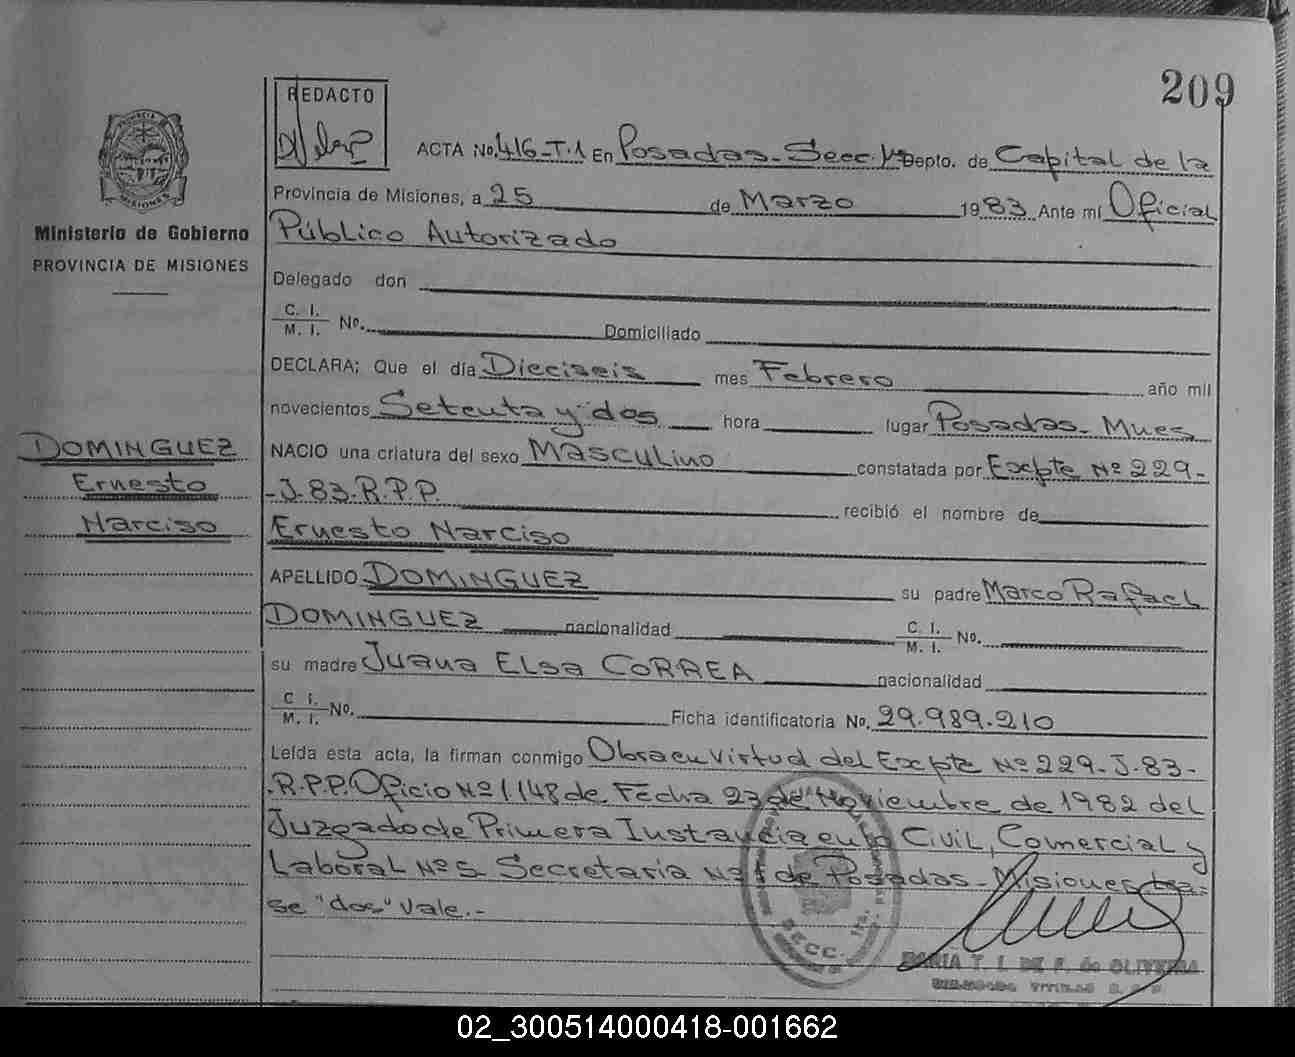 209
REDACTO
ACTA No. 416-T.1 En Posadas-Secc. 1ª Depto. de Capital de la
Provincia de Misiones, a 25 de Marzo 1983. Ante mí Oficial
Público Autorizado
Delegado don
C. I.
M. I. No. Domiciliado
DECLARA: Que el día Dieciseis mes Febrero año mil
novecientos Setenta y dos hora lugar Posadas- Mnes
NACIO una criatura del sexo Masculino constatada por Expte Nº 229-
-J-83-R.P.P. recibió el nombre de
Ernesto Narciso
APELLIDO DOMINGUEZ su padre Marco Rafael
DOMINGUEZ nacionalidad C. I.
M. I. No.
su madre Juana Elsa CORREA nacionalidad
C. I.
M. I. No. Ficha identificatoria No. 29.989.210
Leída esta acta, la firman conmigo Obra en virtud del Expte Nº 229-J-83-
-R.P.P. Oficio Nº 1148 de Fecha 23 de Noviembre de 1982 del
Juzgado de Primera Instancia en lo Civil, Comercial y
Laboral Nº 5 Secretaría Nº 1 de Posadas-Misiones
se "dos" Vale.-
SECC. 1ra.
MARIA T. I. DE F. de OLIVEIRA
Ministerio de Gobierno
PROVINCIA DE MISIONES
DOMINGUEZ
Ernesto
Narciso
02_300514000418-001662